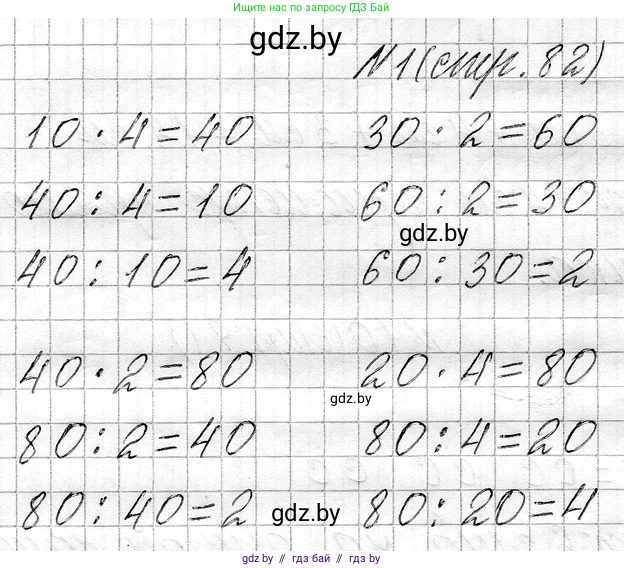 Ищите нас по запросу ГДЗ БАЙ
gdz.by
№1(стр. 82)
10 · 4 = 40 30 · 2 = 60
40 : 4 = 10 60 : 2 = 30
gdz.by
40 : 10 = 4 60 : 30 = 2
40 · 2 = 80 20 · 4 = 80
gdz.by
80 : 2 = 40 80 : 4 = 20
80 : 40 = 2 gdz.by 80 : 20 = 4
gdz.by // гдз бай // гдз.бу